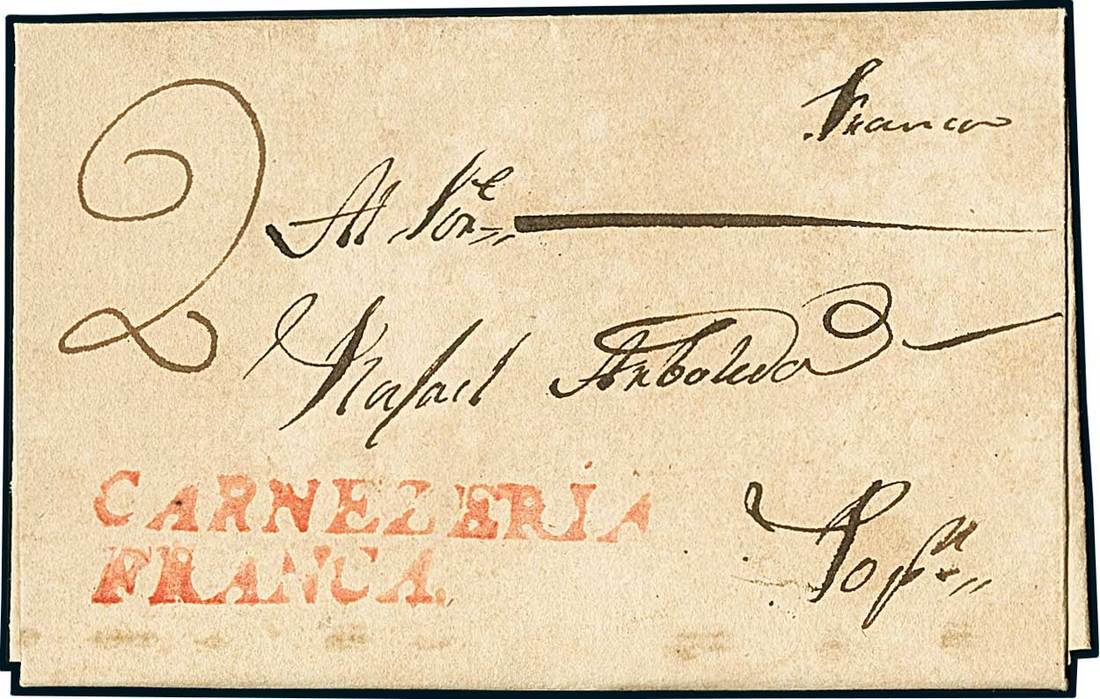 Franco
2
Al Sor.e
Rafael Arboleda
CARNEZERÍA
FRANCA.
Pop.n